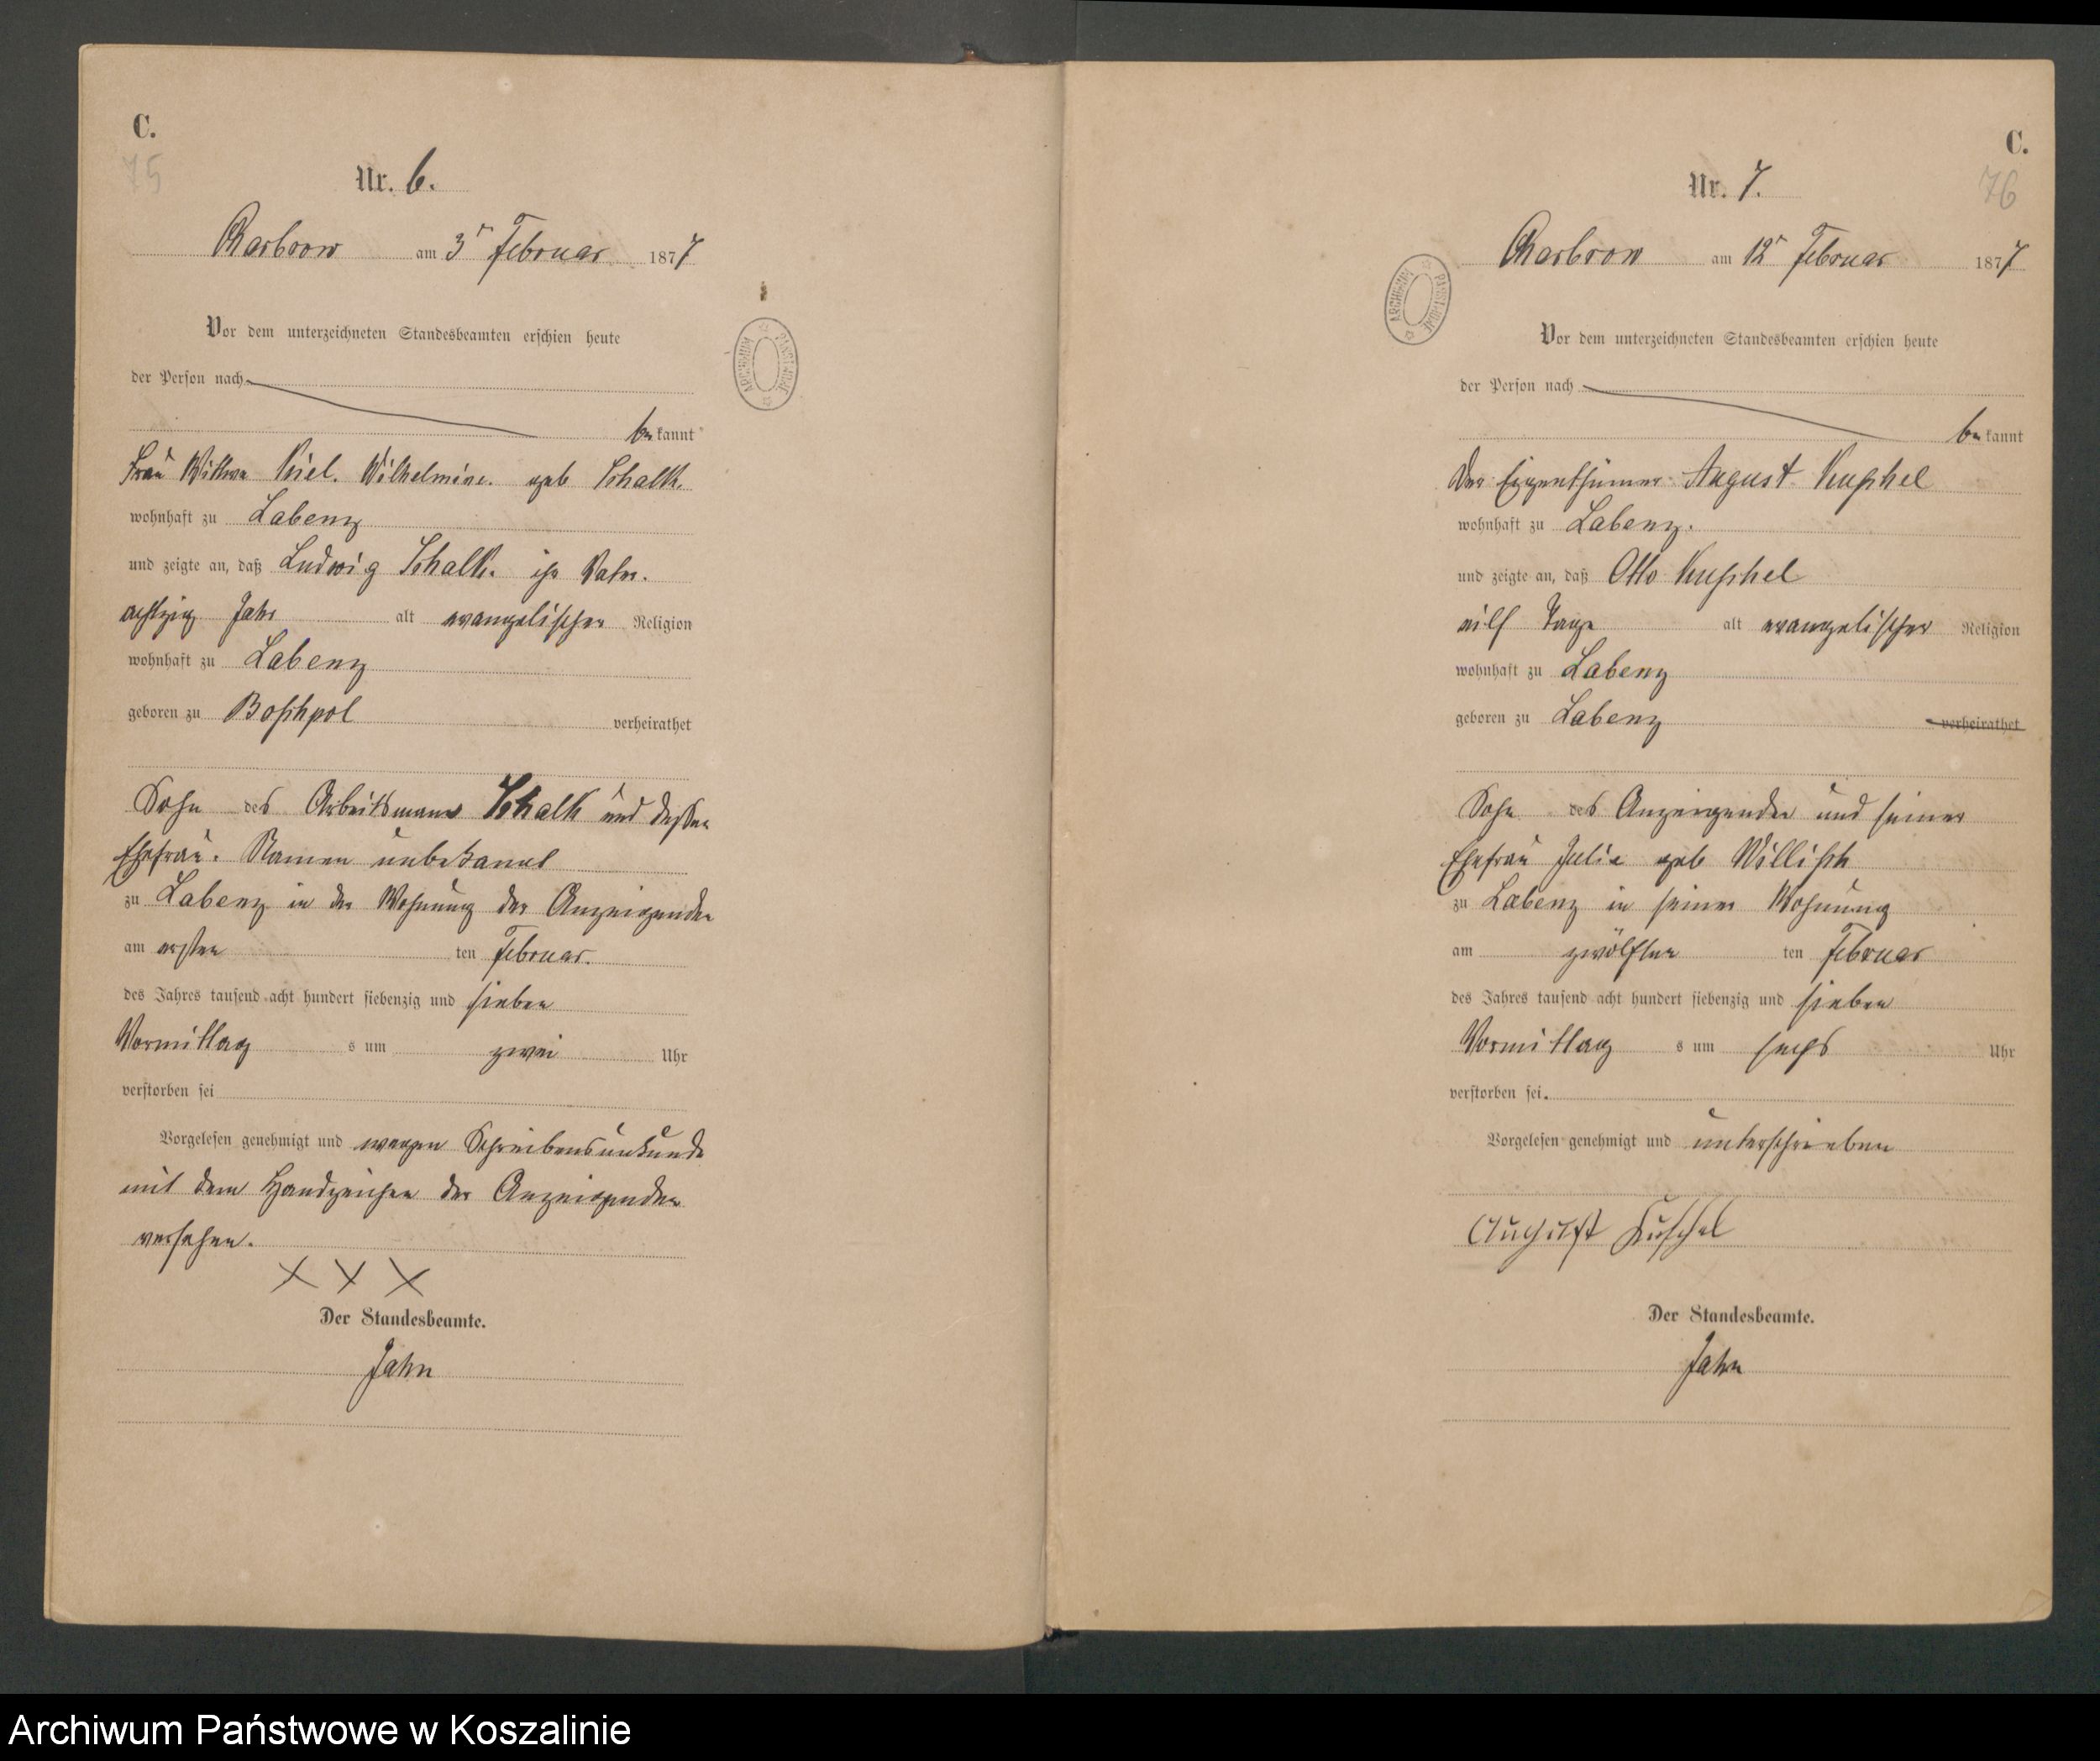 C.
75
Nr. 6.
Charbrow am 3ᵗ Februar 1877
Vor dem unterzeichneten Standesbeamten erschien heute
der Person nach
bekannt
Frau Wittwe Kiel. Wilhelmine. geb Schalk.
wohnhaft zu Labenz
und zeigte an, daß Ludwig Schalk. ihr Vater.
achtzig Jahr alt evangelischer Religion
wohnhaft zu Labenz
geboren zu Boschpol verheirathet
Sohn des Arbeitsmann Schalk und dessen
Ehefrau. Namen unbekannt
zu Labenz in der Wohnung der Anzeigenden
am ersten ten Februar.
des Jahres tausend acht hundert siebenzig und sieben
Vormittag s um zwei Uhr
verstorben sei
Vorgelesen genehmigt und wegen Schreibensunkunde
mit dem Handzeichen der Anzeigenden
versehen.
X X X
Der Standesbeamte.
Jahn
ARCHIWUM PAŃSTWOWE
C.
76
Nr. 7.
Charbrow am 12ᵗ Februar 1877
Vor dem unterzeichneten Standesbeamten erschien heute
der Person nach
bekannt
Der Eigenthümer August Kuschel
wohnhaft zu Labenz.
und zeigte an, daß Otto Kuschel
eilf Tage alt evangelischer Religion
wohnhaft zu Labenz
geboren zu Labenz verheirathet
Sohn des Anzeigenden und seiner
Ehefrau Julie geb
zu Labenz in seiner Wohnung
am zwölften ten Februar
des Jahres tausend acht hundert siebenzig und sieben
Vormittag s um sechs Uhr
verstorben sei.
Vorgelesen genehmigt und unterschrieben
August Kuschel
Der Standesbeamte.
Jahn
ARCHIWUM PAŃSTWOWE
Archiwum Państwowe w Koszalinie